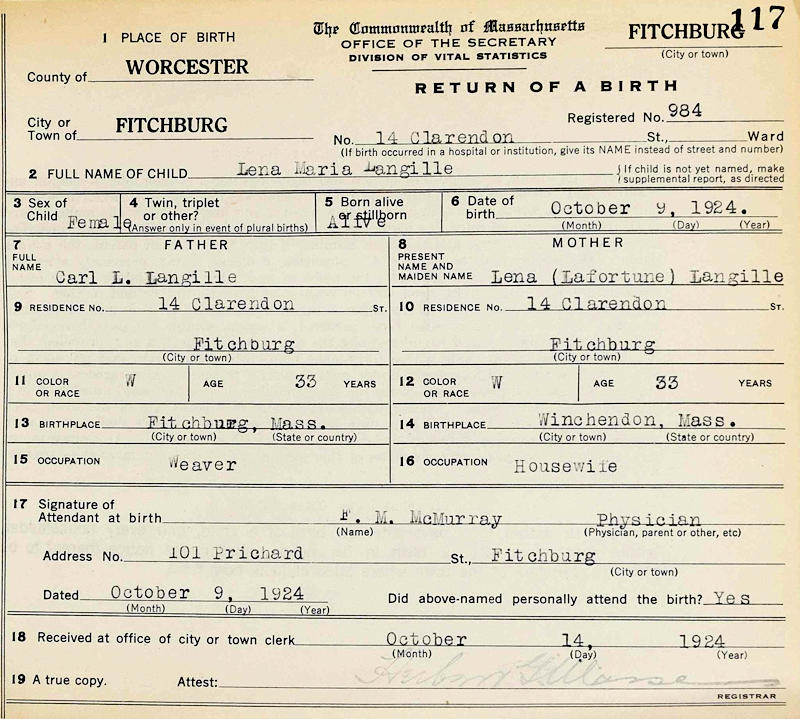 117
The Commonwealth of Massachusetts
OFFICE OF THE SECRETARY
DIVISION OF VITAL STATISTICS
FITCHBURG
(City or town)
1 PLACE OF BIRTH
County of WORCESTER
RETURN OF A BIRTH
City or
Town of FITCHBURG
Registered No. 984
No. 14 Clarendon St., Ward
(If birth occurred in a hospital or institution, give its NAME instead of street and number)
2 FULL NAME OF CHILD Lena Maria Langille
{ If child is not yet named, make
supplemental report, as directed
3 Sex of
Child Female
4 Twin, triplet
or other?
(Answer only in event of plural births)
5 Born alive
or stillborn
Alive
6 Date of
birth October 9, 1924.
(Month) (Day) (Year)
7 FATHER
FULL
NAME
Carl L. Langille
8 MOTHER
PRESENT
NAME AND
MAIDEN NAME Lena (Lafortune) Langille
9 RESIDENCE No. 14 Clarendon ST.
10 RESIDENCE No. 14 Clarendon ST.
Fitchburg
(City or town)
Fitchburg
(City or town)
11 COLOR
OR RACE W AGE 33 YEARS
12 COLOR
OR RACE W AGE 33 YEARS
13 BIRTHPLACE Fitchburg, Mass.
(City or town) (State or country)
14 BIRTHPLACE Winchendon, Mass.
(City or town) (State or country)
15 OCCUPATION Weaver
16 OCCUPATION Housewife
17 Signature of
Attendant at birth F. M. McMurray Physician
(Name) (Physician, parent or other, etc)
Address No. 101 Prichard St., Fitchburg
(City or town)
Dated October 9, 1924
(Month) (Day) (Year)
Did above-named personally attend the birth? Yes
18 Received at office of city or town clerk October 14, 1924
(Month) (Day) (Year)
19 A true copy. Attest:
REGISTRAR